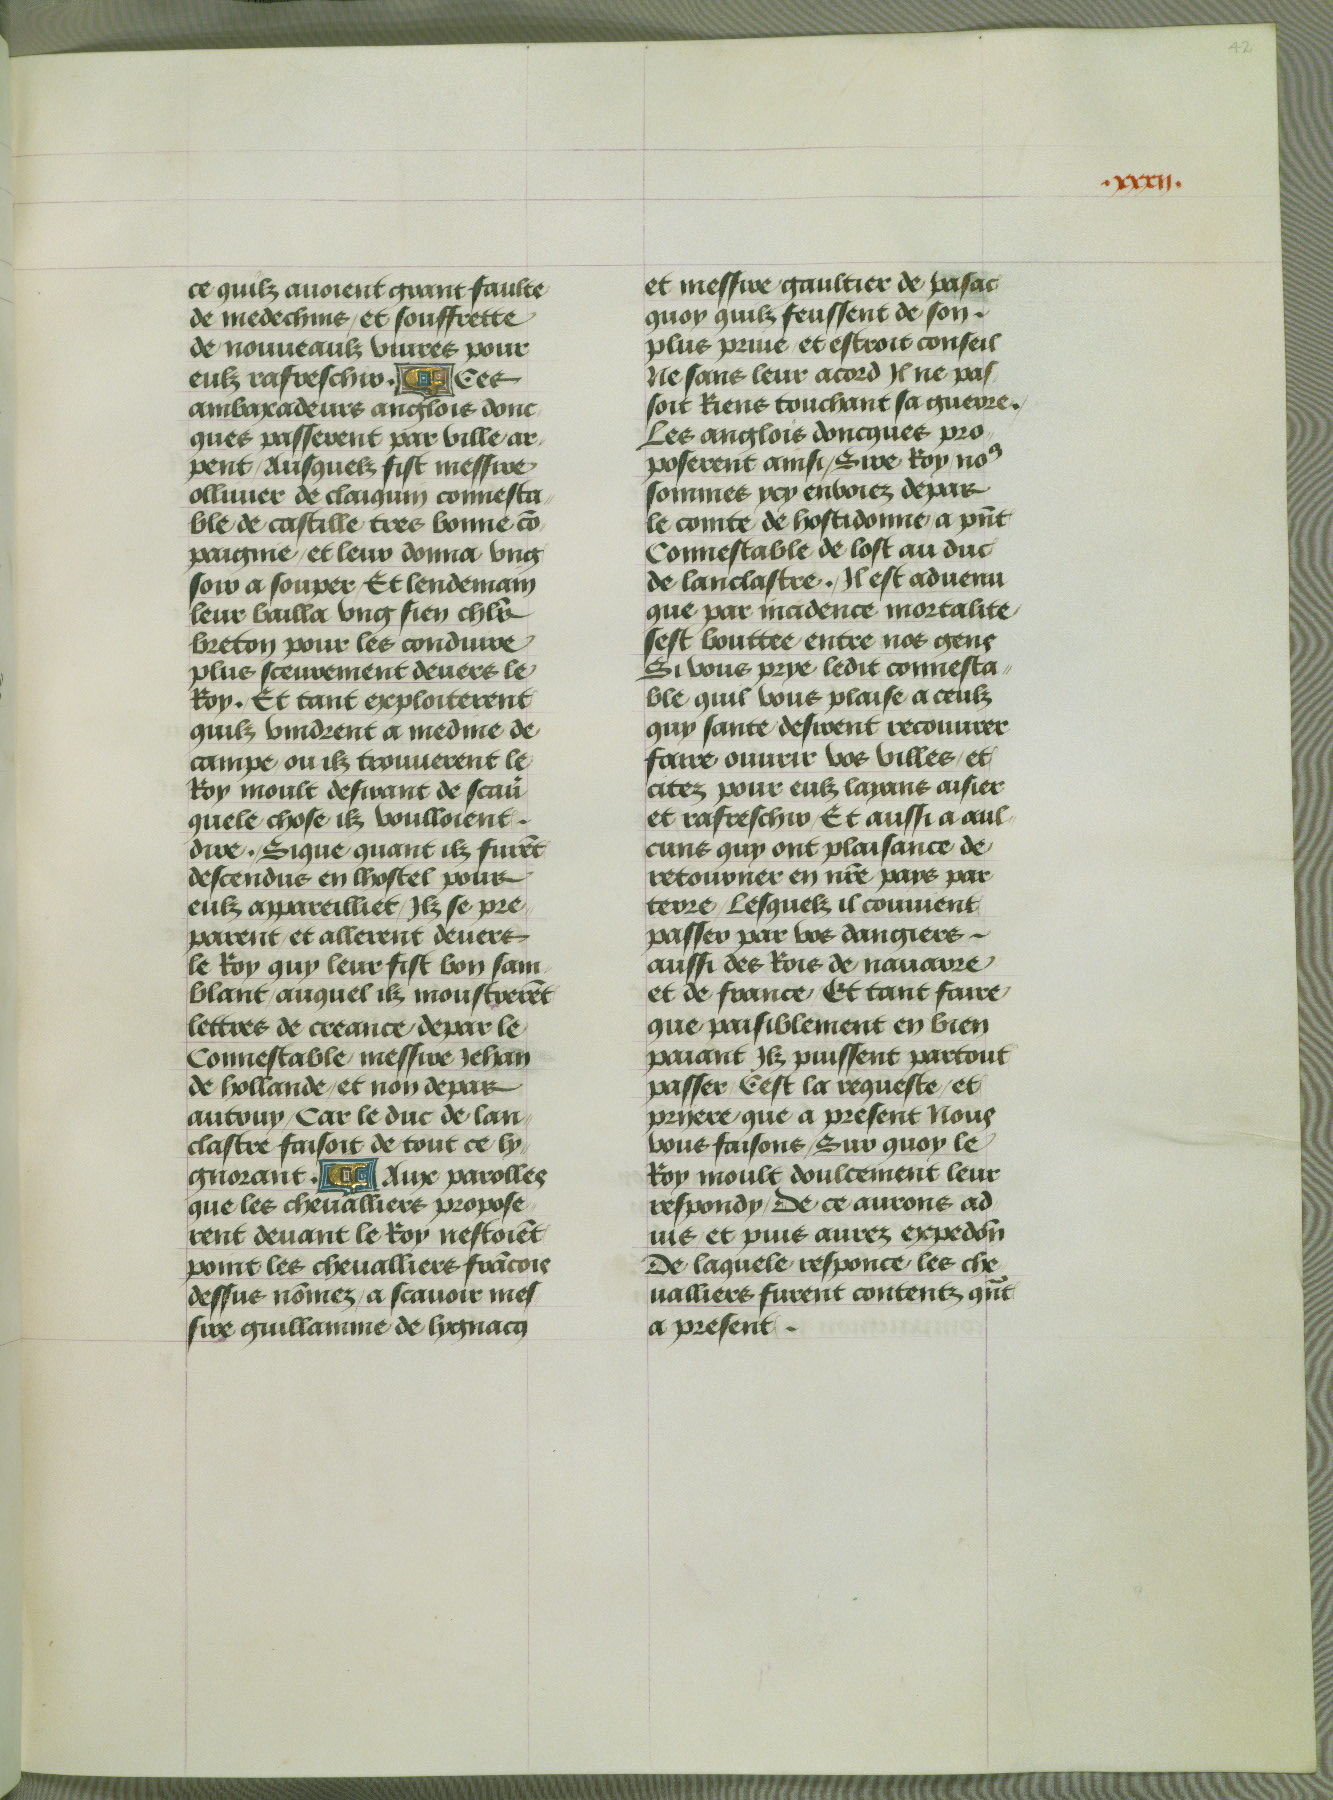 42
.xxxii.
ce quilz auoient grant faulte
de medechine / et souffrette
de nouueaulz viures pour
eulz rafreschir . Ces
ambaxadeurs anglois donc
ques passerent par ville ar
pent / Ausquelz fist messire
olliuier de claiquin connesta
ble de castille tres bonne cō
paignie / et leur donna vng
soir a souper Et lendemain
leur bailla vng sien chlr̄
breton pour les conduire
plus sceurement deuers le
Roy . Et tant exploiterent
quilz vindrent a medine de
campe / ou ilz trouuerent le
Roy moult desirant de scau͛
quele chose ilz voulloient .
dire . Sique quant ilz furēt
descendus en lhostel pour
eulz appareilliet / Ilz se pre
parent et allerent deuers
le Roy quy leur fist bon sam
blant / auquel ilz moustrerēt
lettres de creance / depar le
Connestable messire Jehan
de hollande / et non depar
autruy / Car le duc de lan
clastre faisoit de tout ce ly
gnorant . Aux parolles
que les cheualliers propose
rent deuant le Roy nestoiēt
point les cheualliers frācois
dessus nōmez / a scauoir mes
sire guillamme de lygnacq
et messire gaultier de pasac
quoy quilz feussent de son .
plus priue et estroit conseil
Ne sans leur acord Il ne pas
soit Riens touchant sa guerre .
Les anglois doncques pro
poserent ainsi / Sire Roy noꝰ
sommes ycy enuoiez depar
le comte de hostidonne / a pn̄t
Connestable de lost au duc
de lanclastre . Il est aduenu
que par incidence mortalite
sest bouttee entre nos gens
Si vous prye ledit connesta
ble quil vous plaise a ceulz
quy sante desirent recouurer
faire ouurir vos villes / et
citez pour eulz layans aisier
et rafreschir / Et aussi a aul
cuns quy ont plaisance de
retourner en nr̄e pays par
terre / Lesquelz il conuient
passer par vos dangiers .
aussi des Rois de nauarre
et de france / Et tant faire
que paisiblement en bien
paiant Ilz puissent partout
passer / Cest la requeste / et
pryere que a present Nous
vous faisons / Sur quoy le
Roy moult doulcement leur
respondy / De ce aurons ad
uis / et puis aurez expedōn
De laquele responce les che
ualliers furent contentz qn̄t
a present .